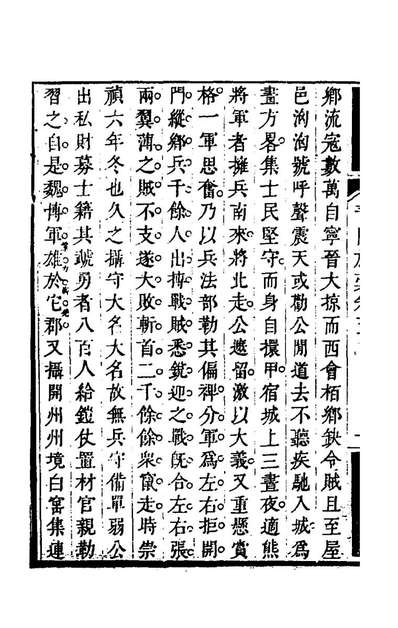 鄉流寇數萬自寧晉大掠而西會栢鄉鈌令賊且至屋
邑洶洶號呼聲震天或勸公間道去不聽疾馳入城爲
畫方畧集士民堅守而身自擐甲宿城上三晝夜適熊
將軍者擁兵南來將北走公遮留激以大義又重懸賞
格一軍思奮乃以兵法部勒其偏裨分軍爲左右拒開
門縱鄉兵千餘人出搏戰賊悉銳迎之戰旣合左右張
兩翼薄之賊不支遂大敗斬首二千餘餘衆竄走時崇
禎六年冬也久之攝守大名大名故無兵守備單弱公
出私財募士籍其驍勇者八百人給鎧仗置材官親勒
習之自是魏博軍雄於它郡又攝開州州境白甯集連